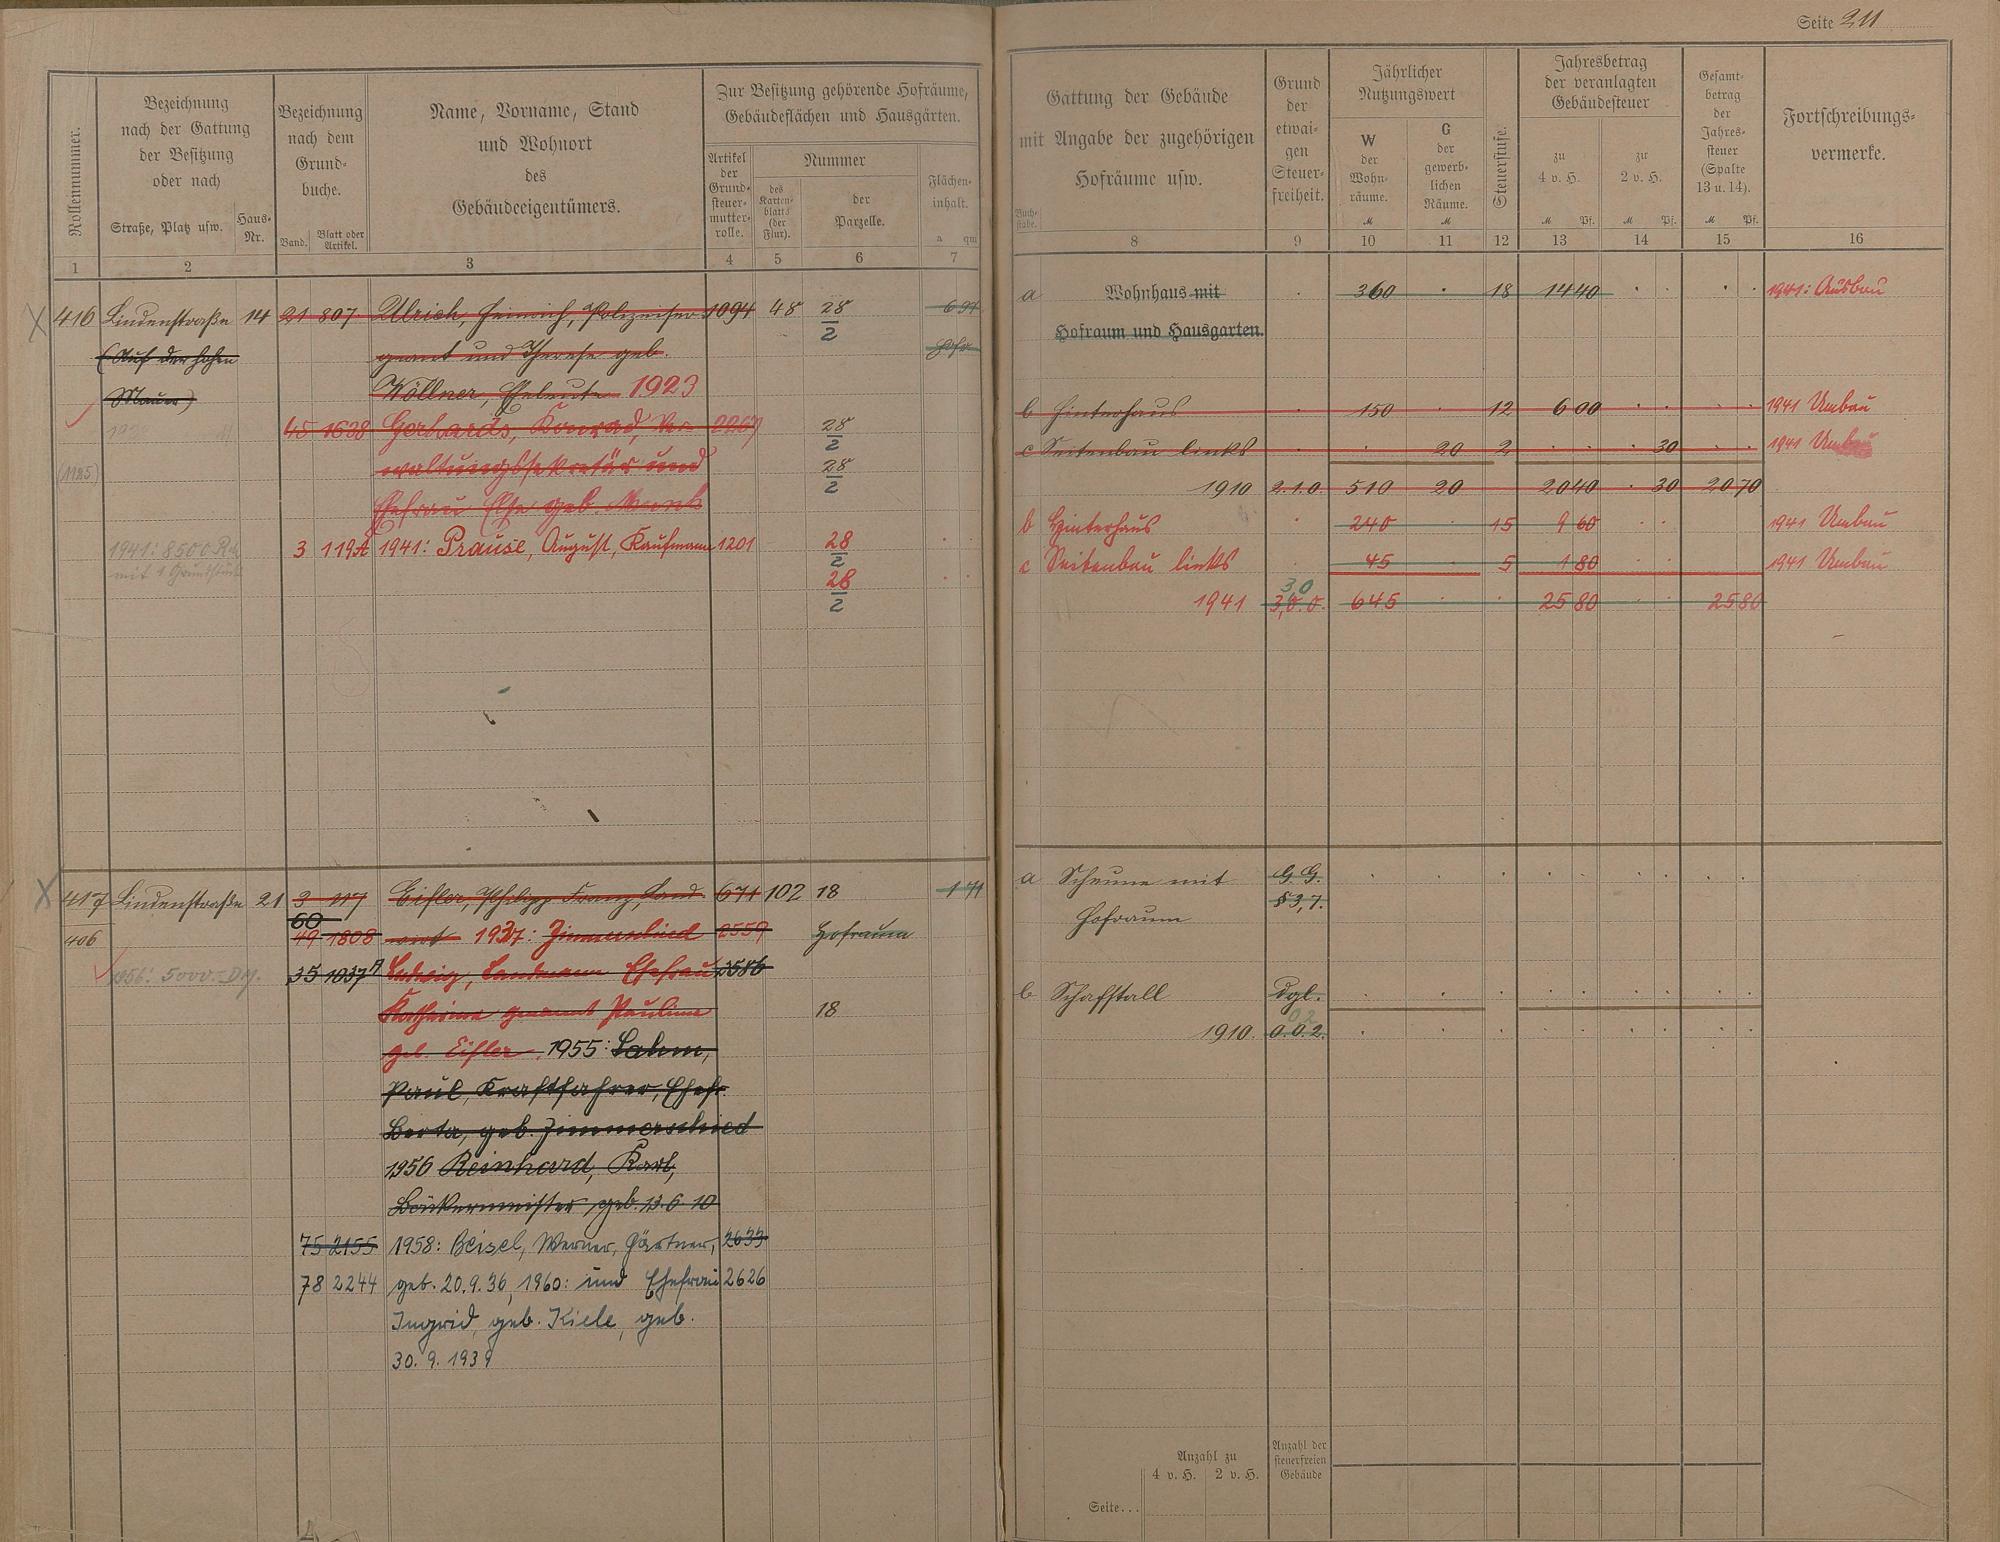 Seite 211
Rollennummer.
Bezeichnung
nach der Gattung
der Besitzung
oder nach
Straße, Platz usw.
Haus-
Nr.
Bezeichnung
nach dem
Grund-
buche.
Band.
Blatt oder
Artikel.
Name, Vorname, Stand
und Wohnort
des
Gebäudeeigentümers.
Zur Besitzung gehörende Hofräume,
Gebäudeflächen und Hausgärten.
Artikel
der
Grund-
steuer-
mutter-
rolle.
Nummer
des
Karten-
blatts
(der
Flur).
der
Parzelle.
Flächen-
inhalt.
a qm
1 2 3 4 5 6 7
416 Lindenstraße 14 21 807 Ulrich, Heinrich, Polizeiser- 1094 48 28/2 694
(Auf der hohen geant und Therese geb. Hofr.
Mauer) Wöllner, Eheleute 1923
45 1638 Gerhards, Konrad, Ver- 2267 28/2
(1125) waltungssekretär und 28/2
Ehefrau Else geb.
1941: 8500 RM 3 119A 1941: Prause, August, Kaufmann 1201 28/2
mit 1 Grundstück 28/2
417 Lindenstraße 21 3 117 Eisler, Philipp Franz, Land- 671 102 18 171
60
406 49 1808 wirt 1937: Zimmerschied 2559 Hofraum
1956: 5000.- DM. 35 1037A Ludwig, Landmann Ehefrau 2586
Katharina genannt Pauline 18
geb. Eisler, 1955: Lahm,
Paul, Kraftfahrer, Ehefr.
Berta, geb. Zimmerschied
1956 Reinhard, Karl,
Bäckermeister geb. 13.6.10
75 2155 1958: Beisel, Werner, Gärtner, 2633
78 2244 geb. 20.9.36, 1960: und Ehefrau 2626
Ingrid, geb. Kiele, geb.
30.9.1939
Gattung der Gebäude
mit Angabe der zugehörigen
Hofräume usw.
Buch-
stabe.
Grund
der
etwai-
gen
Steuer-
freiheit.
Jährlicher
Nutzungswert
W
der
Wohn-
räume.
M
G
der
gewerb-
lichen
Räume.
M
Steuerstufe.
Jahresbetrag
der veranlagten
Gebäudesteuer
zu
4 v. H.
M Pf.
zu
2 v. H.
M Pf.
Gesamt-
betrag
der
Jahres-
steuer
(Spalte
13 u. 14).
M Pf.
Fortschreibungs-
vermerke.
8 9 10 11 12 13 14 15 16
a Wohnhaus mit 360 18 14 40 1941: Ausbau
Hofraum und Hausgarten.
b Hinterhaus 150 12 6 00 1941 Umbau
c Seitenbau links 20 2 30 1941 Umbau
1910 2.1.0. 510 20 20 40 30 20 70
b Hinterhaus 240 15 9 60 1941 Umbau
c Seitenbau links 45 5 1 80 1941 Umbau
30
1941 3.0.0. 645 25 80 25 80
a Scheune mit G. G.
Hofraum § 3,7.
b Schafstall dgl.
02
1910. 0.0.2.
Anzahl zu
4 v. H. 2 v. H.
Anzahl der
steuerfreien
Gebäude
Seite...